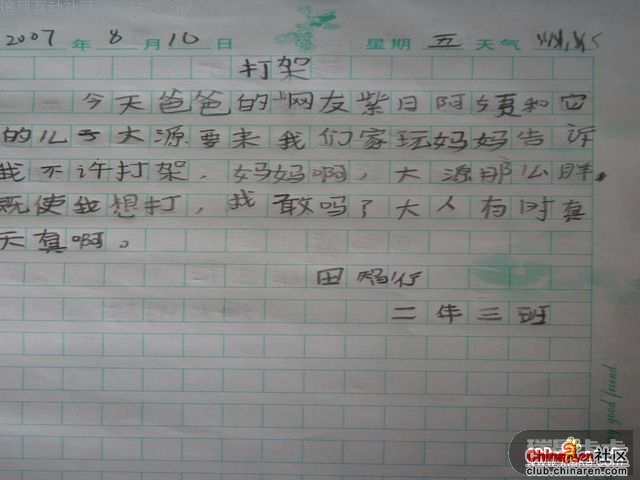 追风互动社区
2007 年 8 月 10 日 星期 五 天气
打架
今天爸爸的"网友紫日阿姨和它
的儿子大源要来我们家玩妈妈告诉
我不许打架,妈妈啊,大源那么胖,
既使我想打,我敢吗?大人有时真
天真啊。
田 行
二年三班
my good friend
ChinaRen社区
club.chinaren.com